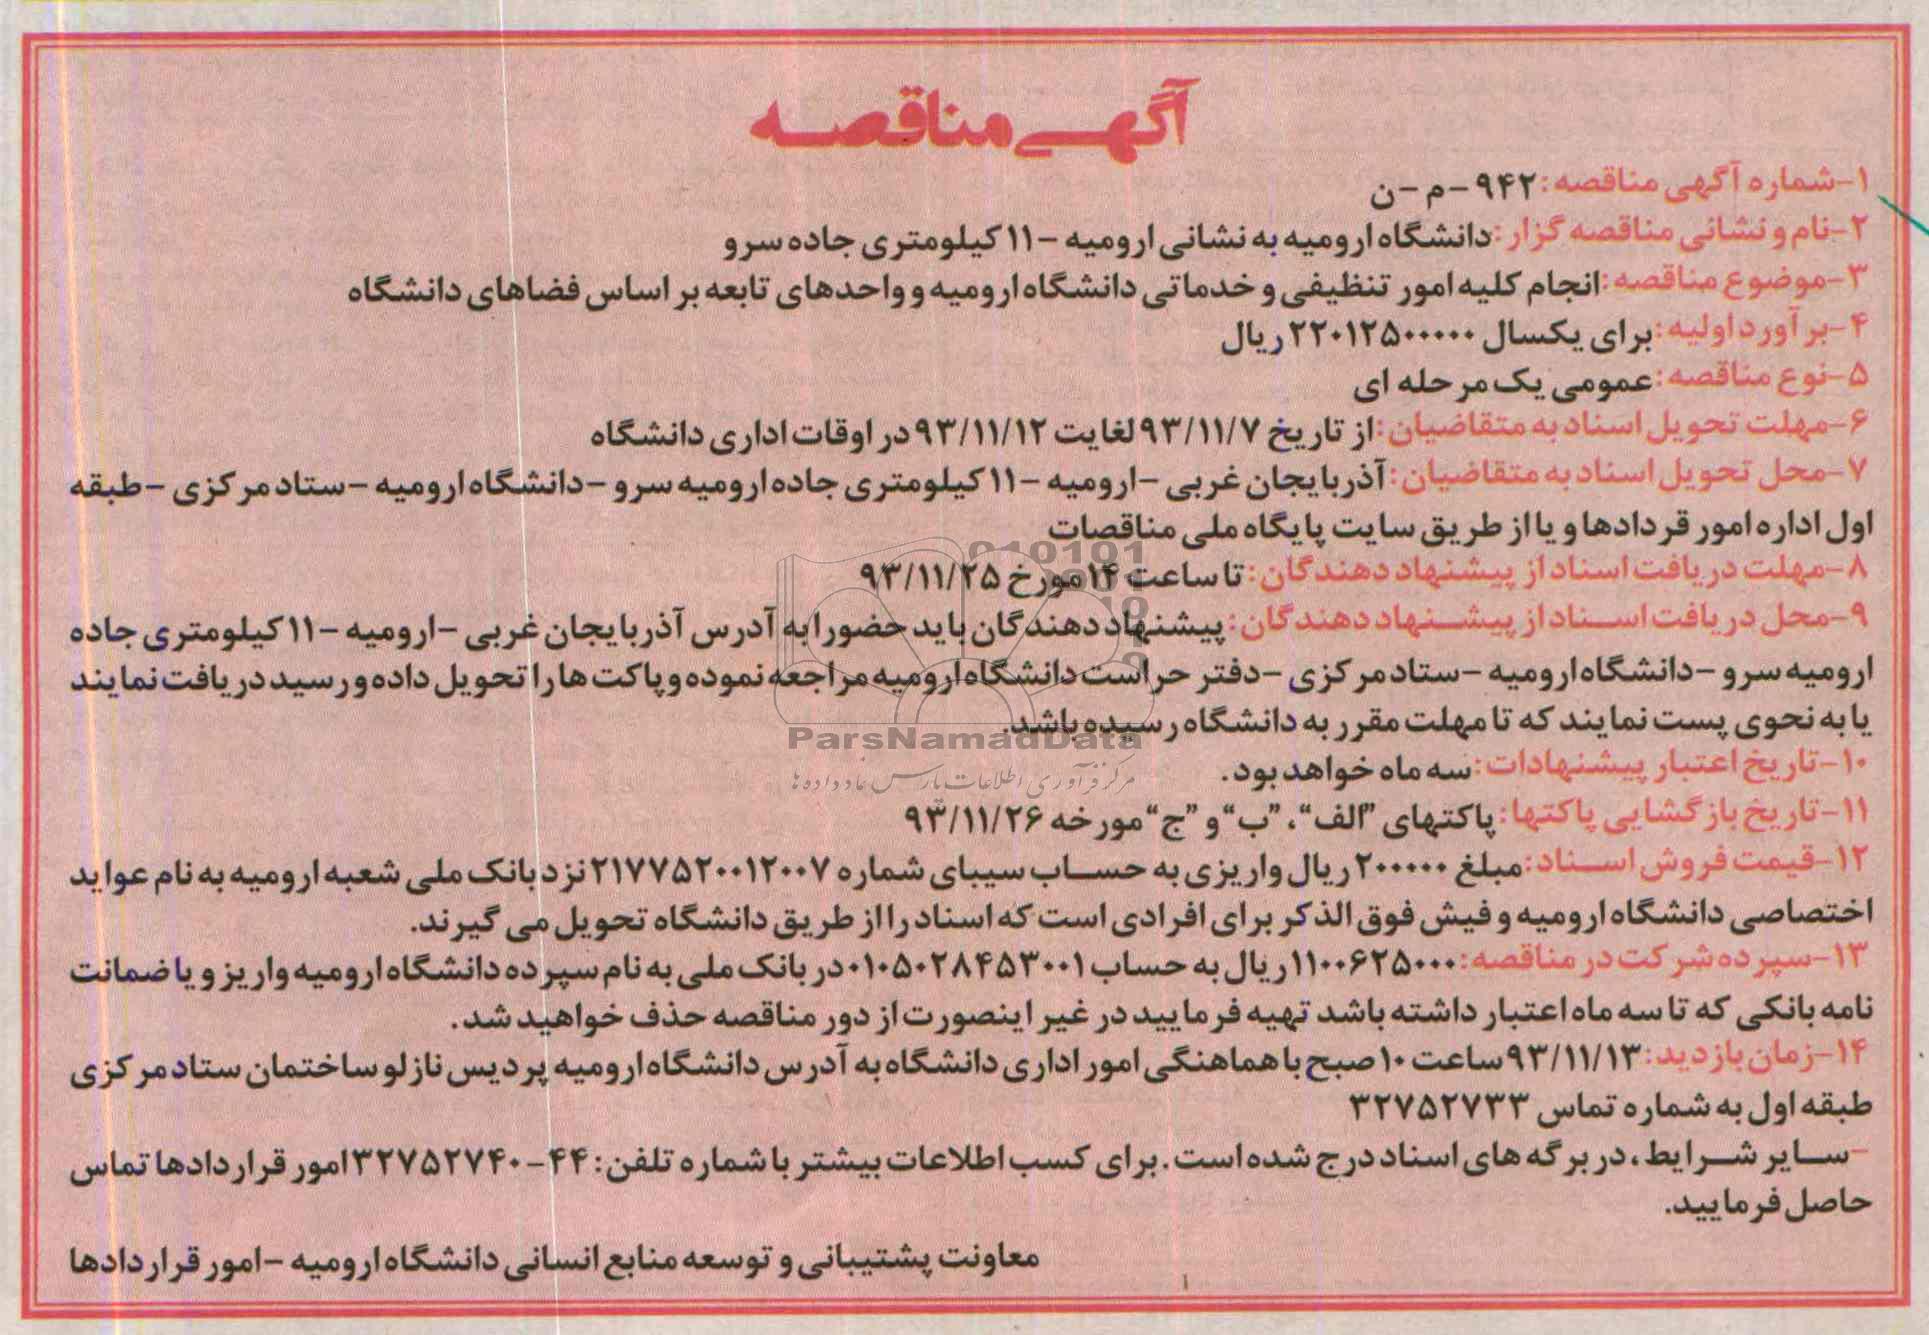 آگهی مناقصه
۱-شماره آگهی مناقصه: ۹۴۲-م-ن
۲-نام و نشانی مناقصه گزار: دانشگاه ارومیه به نشانی ارومیه -۱۱ کیلومتری جاده سرو
۳-موضوع مناقصه: انجام کلیه امور تنظیفی و خدماتی دانشگاه ارومیه و واحدهای تابعه بر اساس فضاهای دانشگاه
۴-برآورد اولیه: برای یکسال ۲۲۰۱۲۵۰۰۰۰۰ ریال
۵-نوع مناقصه: عمومی یک مرحله ای
۶-مهلت تحویل اسناد به متقاضیان: از تاریخ ۹۳/۱۱/۷ لغایت ۹۳/۱۱/۱۲ در اوقات اداری دانشگاه
۷-محل تحویل اسناد به متقاضیان: آذربایجان غربی -ارومیه -۱۱ کیلومتری جاده ارومیه سرو -دانشگاه ارومیه -ستاد مرکزی -طبقه
اول اداره امور قردادها و یا از طریق سایت پایگاه ملی مناقصات
۸-مهلت دریافت اسناد از پیشنهاد دهندگان: تا ساعت ۱۴ مورخ ۹۳/۱۱/۲۵
۹-محل دریافت اسناد از پیشنهاد دهندگان: پیشنهاد دهندگان باید حضورا به آدرس آذربایجان غربی -ارومیه -۱۱ کیلومتری جاده
ارومیه سرو -دانشگاه ارومیه -ستاد مرکزی -دفتر حراست دانشگاه ارومیه مراجعه نموده و پاکت ها را تحویل داده و رسید دریافت نمایند
یا به نحوی پست نمایند که تا مهلت مقرر به دانشگاه رسیده باشد.
ParsNamadData
مرکز فرآوری اطلاعات پارس نماد داده ها
۱۰-تاریخ اعتبار پیشنهادات: سه ماه خواهد بود.
۱۱-تاریخ بازگشایی پاکتها: پاکتهای "الف"، "ب" و "ج" مورخه ۹۳/۱۱/۲۶
۱۲-قیمت فروش اسناد: مبلغ ۲۰۰۰۰۰ ریال واریزی به حساب سیبای شماره ۲۱۷۷۵۲۰۰۱۲۰۰۷ نزد بانک ملی شعبه ارومیه به نام عواید
اختصاصی دانشگاه ارومیه و فیش فوق الذکر برای افرادی است که اسناد را از طریق دانشگاه تحویل می گیرند.
۱۳-سپرده شرکت در مناقصه: ۱۱۰۰۶۲۵۰۰۰ ریال به حساب ۰۱۰۵۰۲۸۴۵۳۰۰۱ در بانک ملی به نام سپرده دانشگاه ارومیه واریز و یا ضمانت
نامه بانکی که تا سه ماه اعتبار داشته باشد تهیه فرمایید در غیر اینصورت از دور مناقصه حذف خواهید شد.
۱۴-زمان بازدید: ۹۳/۱۱/۱۳ ساعت ۱۰ صبح با هماهنگی امور اداری دانشگاه به آدرس دانشگاه ارومیه پردیس نازلو ساختمان ستاد مرکزی
طبقه اول به شماره تماس ۳۲۷۵۲۷۳۳
-سایر شرایط، در برگه های اسناد درج شده است. برای کسب اطلاعات بیشتر با شماره تلفن: ۴۴-۳۲۷۵۲۷۴۰ امور قراردادها تماس
حاصل فرمایید.
معاونت پشتیبانی و توسعه منابع انسانی دانشگاه ارومیه -امور قراردادها